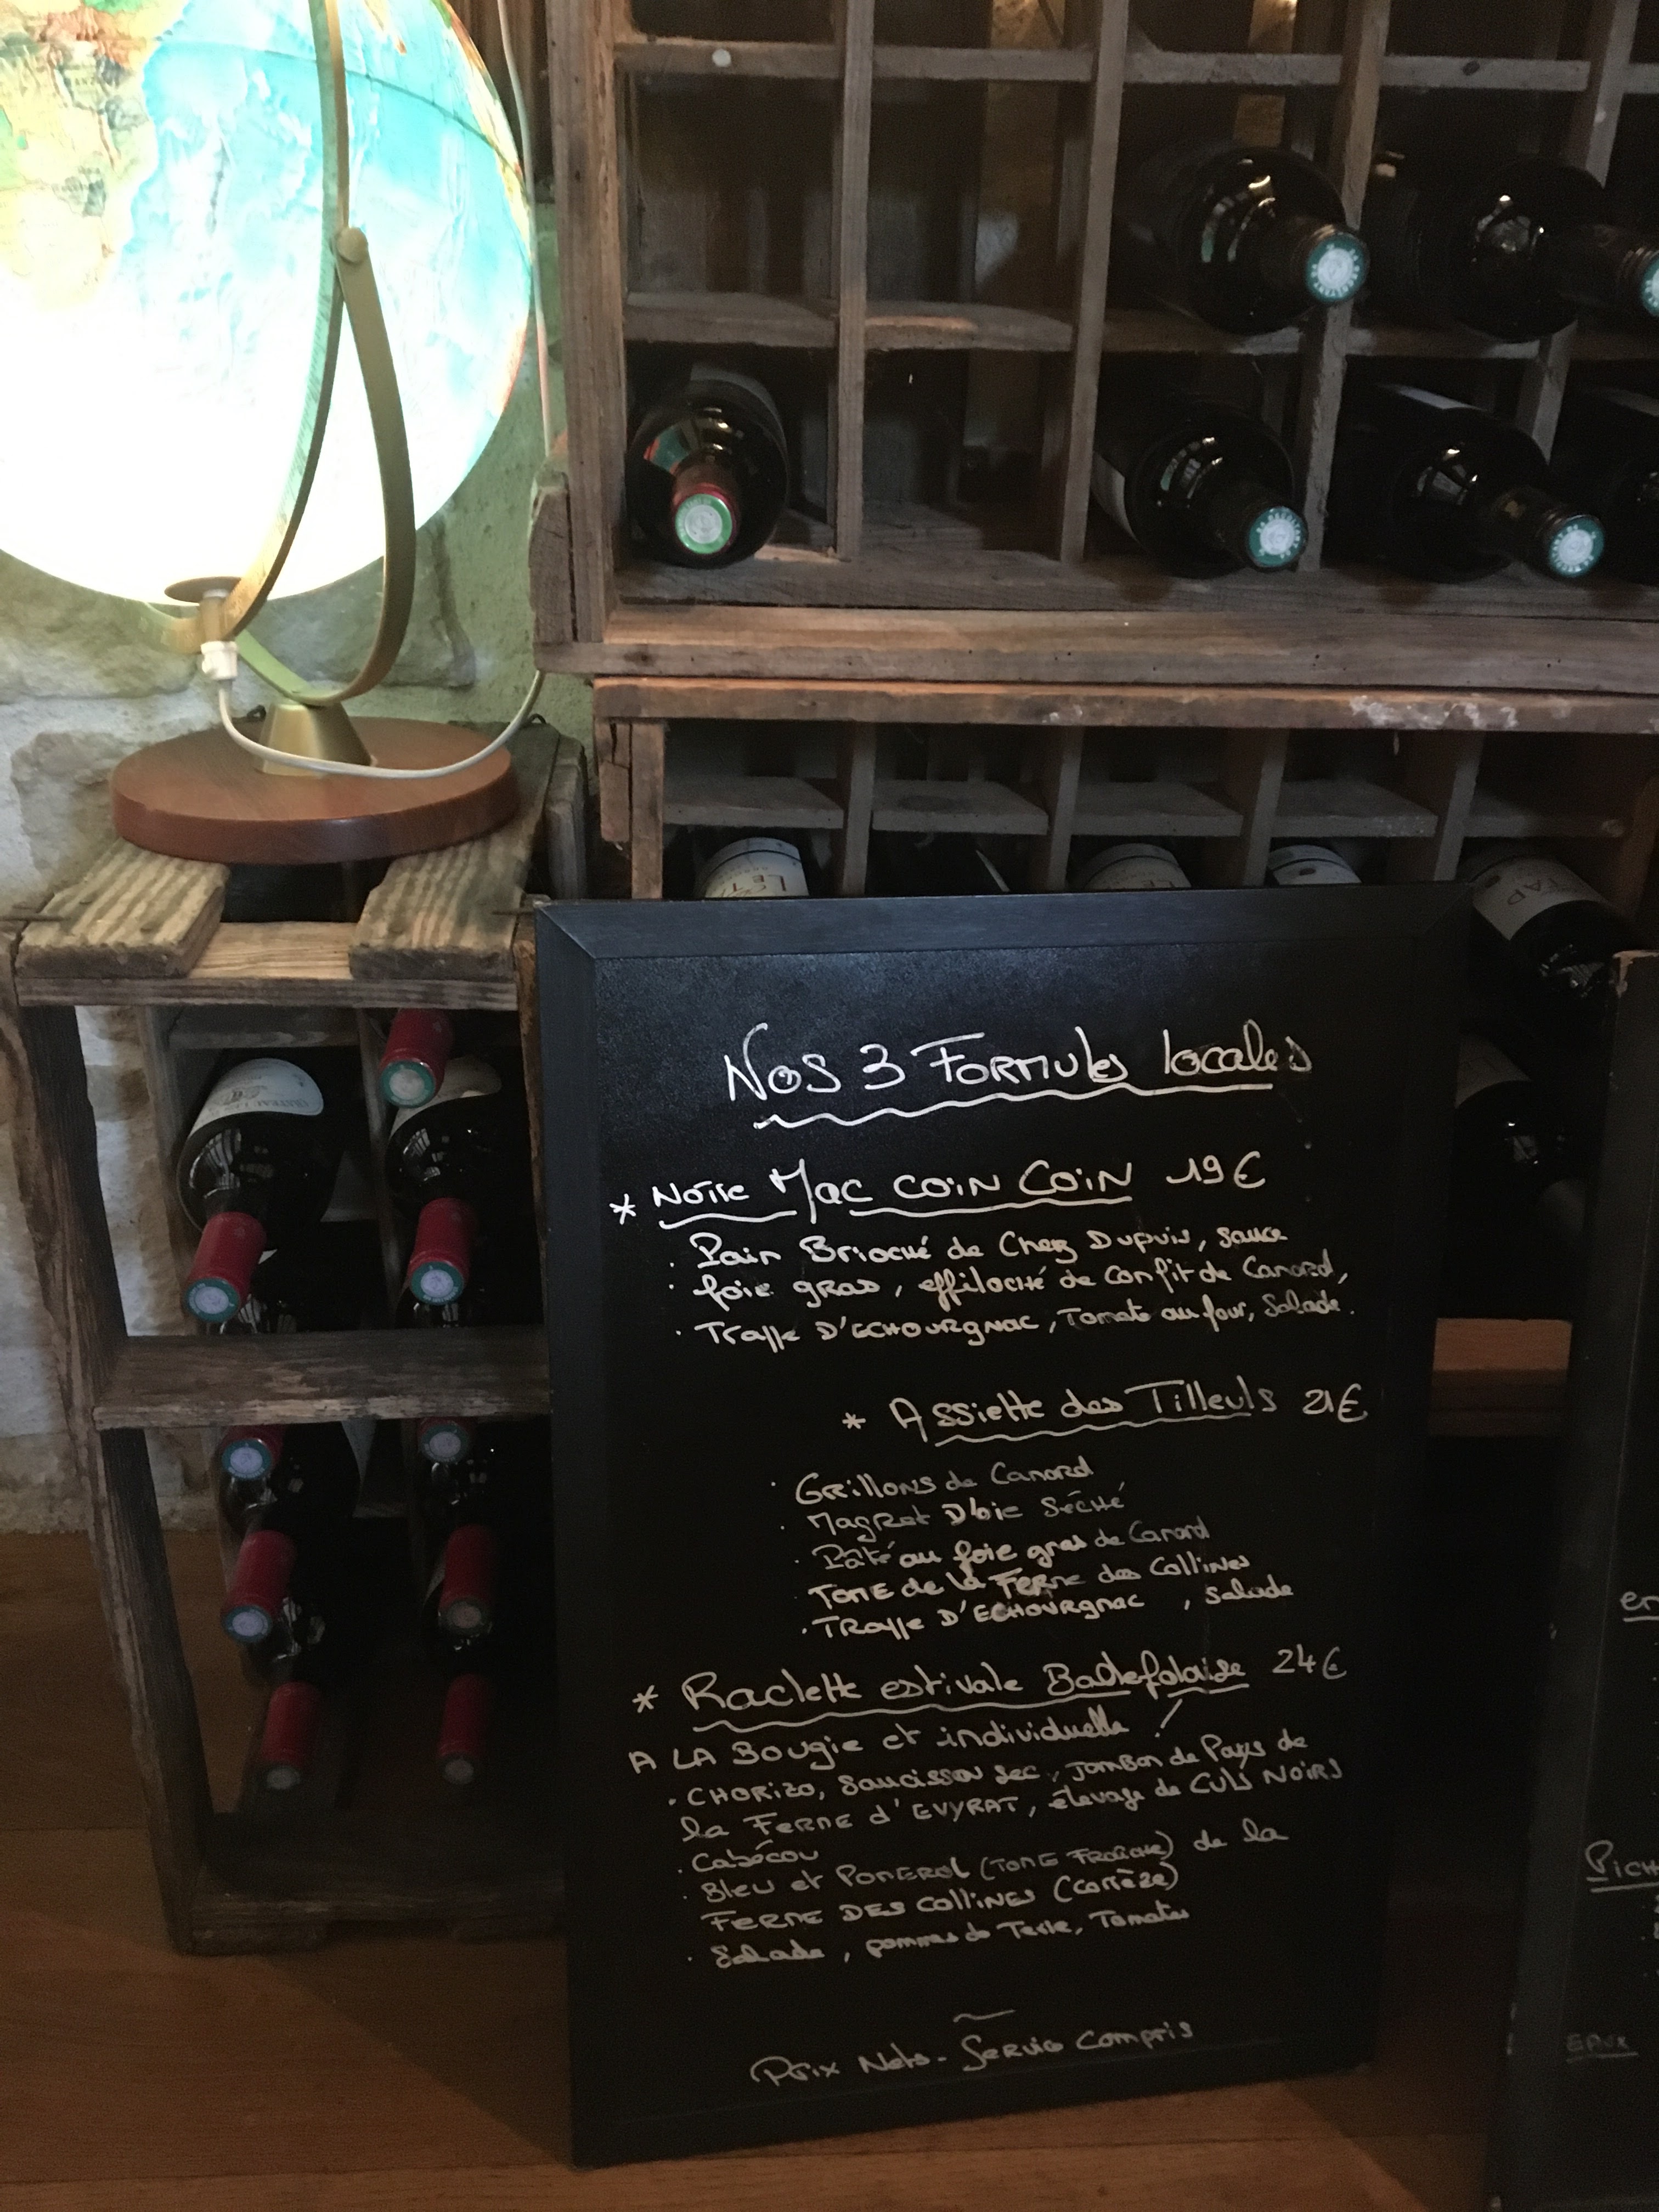 Nos 3 Formules locales
* Notre Mac Coin Coin 19€
. Pain Brioché de Chez Dupuis, sauce
. foie gras, effiloché de Confit de Canard,
. Trappe D'Echourgnac, Tomate au four, Salade.
* Assiette des Tilleuls 21€
. Grillons de Canard
. Magret D'oie Séché
. Pâté au foie gras de Canard
. Tome de la Ferme des Collines
. Trappe D'Echourgnac, Salade
* Raclette estivale Badefolaise 24€
A LA Bougie et individuelle !
. CHORIZO, Saucisson sec, Jambon de Pays de
la Ferme d'EVYRAT, élevage de CULS NOIRS
. Cabécou
. Bleu et Pomerol (TOME FRAÎCHE) de la
FERME DES COLLINES (Corrèze)
. Salade, pommes de Terre, Tomates
Prix Nets - Service Compris
en
Pich
EAUX